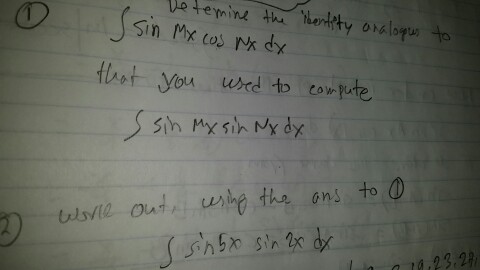 ① Determine the identity analogus to
∫ sin Mx cos Nx dx
that you used to compute
∫ sin Mx sin Nx dx
2 work out, using the ans to ①
∫ sin5x sin 2x dx
19, 23, 29